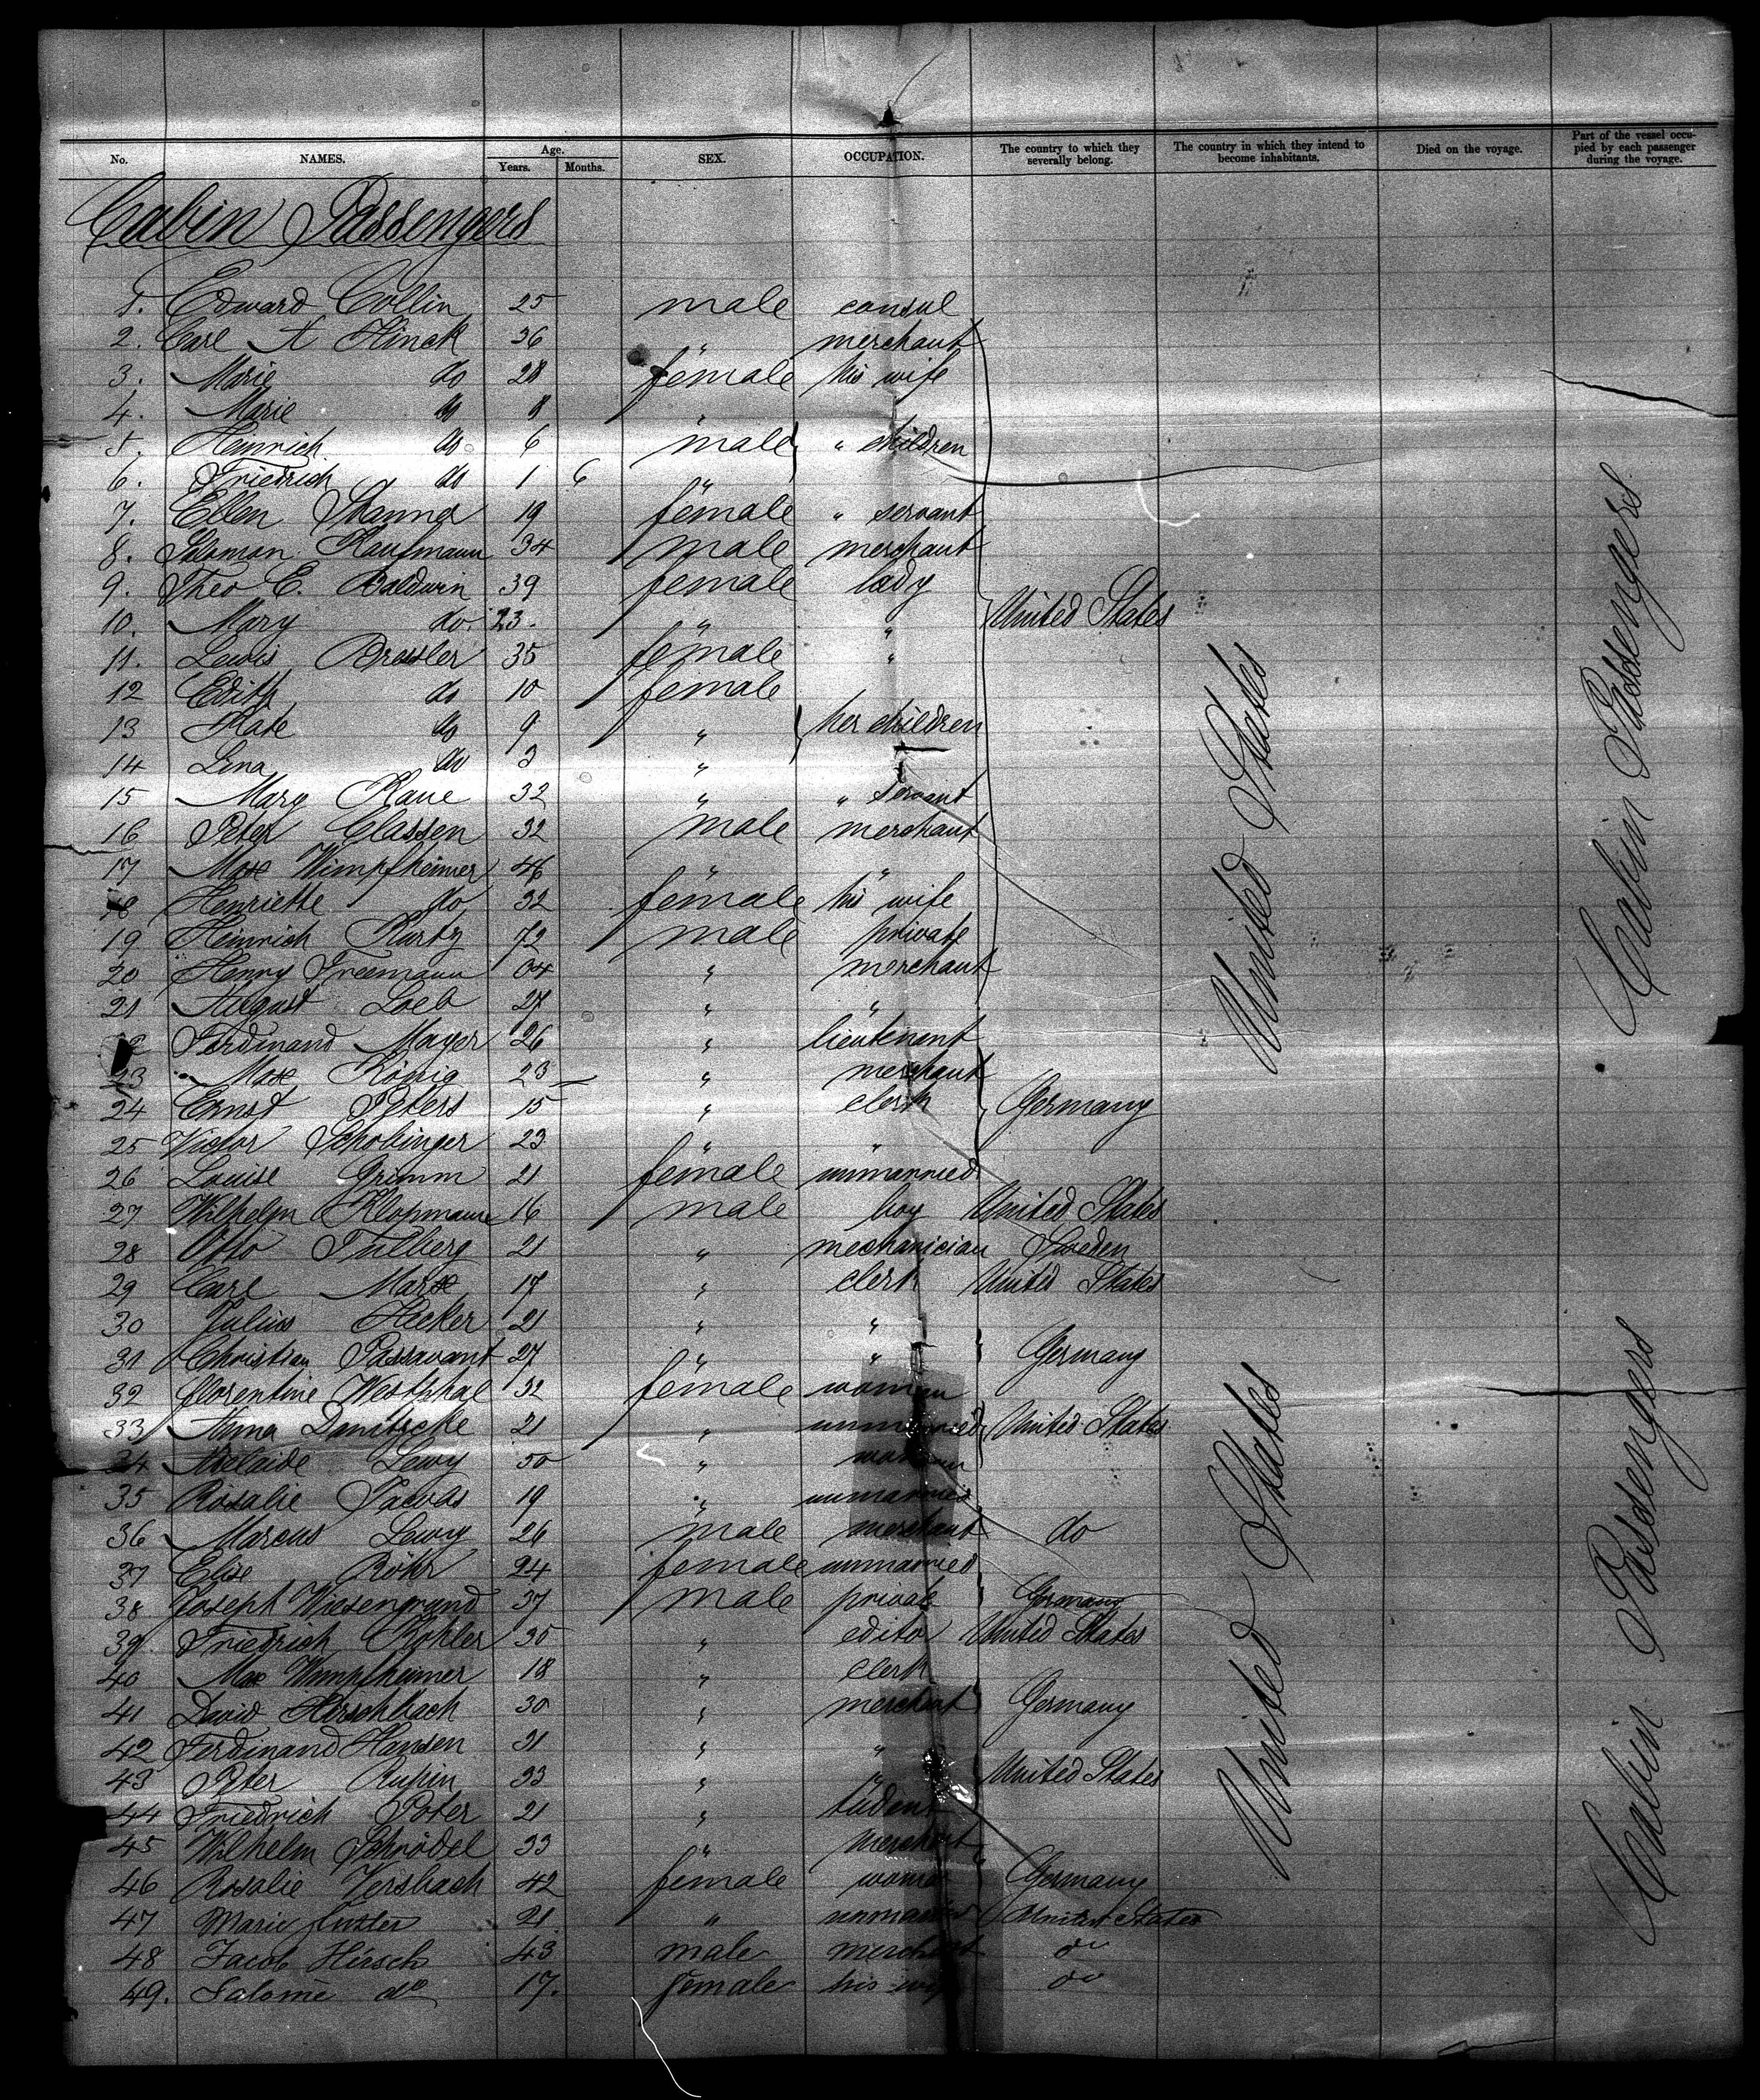 No. NAMES. Age. Years. Months. SEX. OCCUPATION. The country to which they severally belong. The country in which they intend to become inhabitants. Died on the voyage. Part of the vessel occupied by each passenger during the voyage.
Cabin Passengers
1. Edward Collin 25 male consul
2. Carl A Hinck 36 " merchant
3. Marie do 28 female his wife
4. Marie do 8 "
5. Heinrich do 6 male " children
6. Friedrich do 1 6 "
7. Ellen 19 female " servant
8. Salomon Kaufmann 34 male merchant
9. Theo E. Baldwin 39 female lady
10. Mary do. 23. " " United States
11. Lewis Bressler 35 female "
12 Edith do 10 female
13 Kate do 9 " her children
14 Lina do 3 "
15 Mary Kane 32 " " servant
16 Peter Classen 32 male merchant
17 Max Wimpfheimer 46 " "
18 Henriette do 32 female his wife
19 Heinrich Kurtz 72 male private
20 Henry Freemann " merchant
21 August Loeb 27 " "
22 Ferdinand Mayer 26 " lieutenant
23 Max König 23 " merchant
24 Ernst Peters 15 " clerk Germany
25 Victor Schobinger 23 " "
26 Louise Grimm 21 female unmarried
27 Wilhelm Klopmann 16 male boy United States
28 Otto Tullberg 21 " mechanician Sweden
29 Carl Marx 17 " clerk United States
30 Julius Hecker 21 " "
31 Christian Passavant 27 " " Germany
32 Florentine Westphal 32 female woman
33 Anna Danitzcke 21 " unmarried United States
34 Adelaide Lewy 50 " woman
35 Rosalie Jacobs 19 " unmarried
36 Marcus Lewy 26 male merchant do
37 Elise Röhr 24 female unmarried
38 Joseph Wiesengrund 37 male private Germany
39 Friedrich Köhler 35 " editor United States
40 Max Wimpfheimer 18 " clerk
41 David Hirschbach 30 " merchant Germany
42 Ferdinand Hansen 31 " "
43 Peter Rupin 33 " " United States
44 Friedrich Poter 21 " tudent
45 Wilhelm Schrödel 33 " merchant
46 Rosalie Versbach 42 female woman Germany
47 Marie 21 " unmarried United States
48 Jacob Hirsch 43 male merchant do
49. Salomé do 17. female his wife do
United States
United States
Cabin Passengers
Cabin Passengers